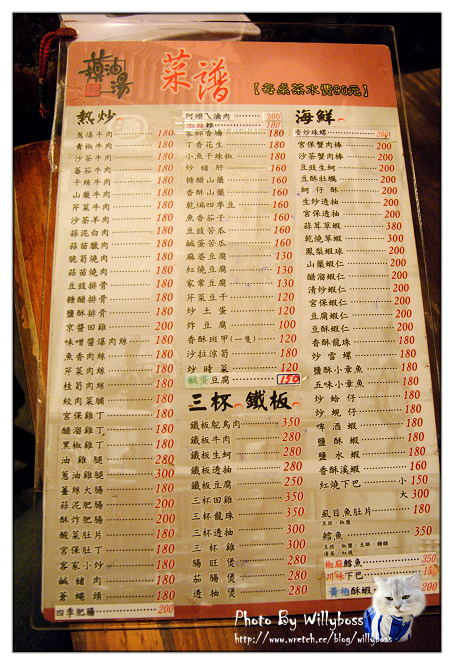 蔴油湯
菜譜
【每桌茶水費80元】
熱炒
蔥爆牛肉 180
青椒牛肉 180
沙茶牛肉 180
蕃茄牛肉 180
干絲牛肉 180
山藥牛肉 180
芹菜牛肉 180
沙茶羊肉 180
蒜泥白肉 180
蒜苗臘肉 180
脆筍燒肉 180
蒜苗燒肉 180
豆豉排骨 180
糖醋排骨 180
鹽酥排骨 180
京醬回雞 200
味噌醬爆肉絲 180
魚香肉絲 180
芹菜肉絲 180
桂筍肉絲 180
絞肉菜脯 180
宮保雞丁 180
醋溜雞丁 180
黑椒雞丁 180
油雞 280
蔥油雞 300
薑絲大腸 180
蒜泥肥腸 180
酥炸肥腸 180
酸菜肚片 180
宮保肚丁 180
客家小炒 180
鹹豬肉 180
蒼蠅頭 180
四季肥腸 200
阿嬤ㄟ滷肉 200
180
家鄉香腸 180
丁香花生 180
小魚干辣椒 180
炒豬肝 180
糖醋山藥 180
香酥山藥 180
乾煸四季豆 180
魚香茄子 180
豆豉苦瓜 180
鹹蛋苦瓜 180
麻婆豆腐 130
紅燒豆腐 130
家常豆腐 130
芹菜豆干 120
炒土蛋 120
炸豆腐 100
香酥斑甲(一隻) 120
沙拉涼筍 180
炒時菜 120
鹹蛋豆腐 150
三杯 鐵板
鐵板鴕鳥肉 350
鐵板牛肉 280
鐵板生蚵 280
鐵板透抽 280
鐵板豆腐 250
三杯田雞 350
三杯龍珠 350
三杯透抽 300
三杯雞 300
腸旺煲 280
茄腸煲 280
透抽煲 280
海鮮
香炒珠螺 200
宮保蟹肉棒 180
沙茶蟹肉棒 180
豆豉生蚵 180
豆酥牡蠣 180
蚵仔酥 180
生炒透抽 180
宮保透抽 180
蒜茸草蝦 380
乾燒草蝦 300
鳳梨蝦球 200
山藥蝦仁 200
醋溜蝦仁 200
清炒蝦仁 200
宮保蝦仁 200
豆腐蝦仁 200
豆酥蝦仁 200
香酥龍珠 180
炒雪螺 180
鹽酥小章魚 180
五味小章魚 180
炒蛤仔 180
炒蜆仔 180
啤酒蝦 180
鹽酥蝦 180
鹽水蝦 180
香酥溪蝦 180
紅燒下巴 小 150
大 300
虱目魚肚片 180
豆豉、椒鹽
鱈魚 350
椒麻鱈魚 350
川味下巴
黃柏酥蝦 200
Photo By Willyboss
http://www.wretch.cc/blog/willyboss